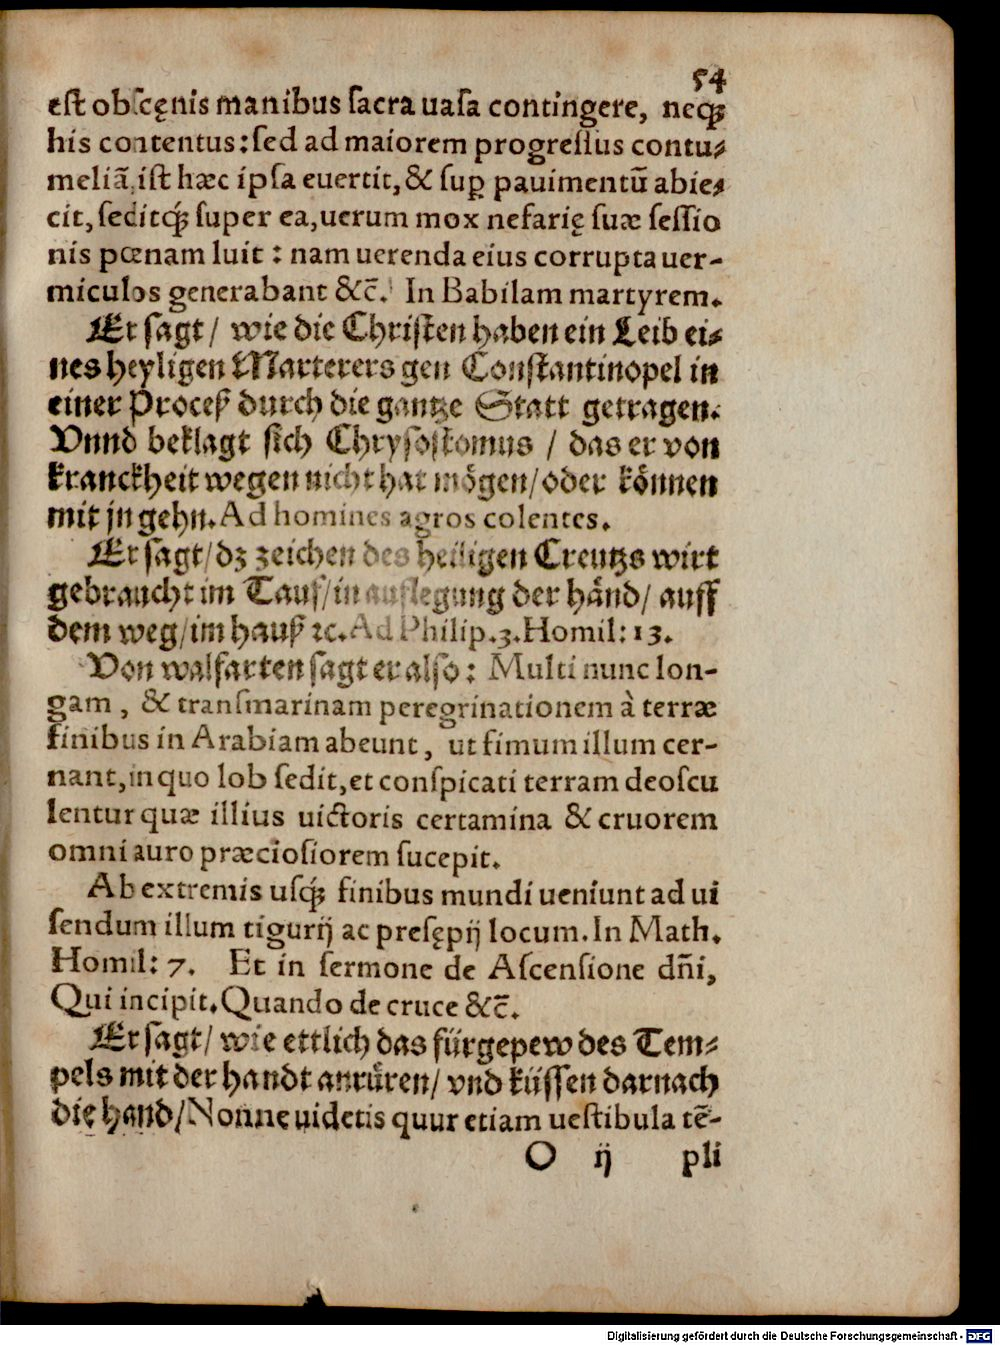 54
est obscęnis manibus sacra uasa contingere, neqꝫ
his contentus: sed ad maiorem progressus contu⸗
meliã ist hæc ipsa euertit, & suꝑ pauimentũ abie⸗
cit, seditqꝫ super ea, uerum mox nefarię suæ sessio
nis pœnam luit : nam uerenda eius corrupta uer-
miculos generabant &c̃. In Babilam martyrem.
Er sagt / wie die Christen haben ein Leib ei⸗
nes heyligen Marterers gen Constantinopel in
einer Proceß durch die gantze Statt getragen.
Vnnd beklagt sich Chrysostomus / das er von
kranckheit wegen nicht hat mögen / oder können
mit jn gehn. Ad homines agros colentes.
Er sagt / dz zeichen des heiligen Creutzs wirt
gebraucht im Tauf / in auflegung der hånd / auff
dem weg / im hauß ꝛc. Ad Philip. 3. Homil: 13.
Von walfarten sagt er also : Multi nunc lon-
gam , & transmarinam peregrinationem à terræ
finibus in Arabiam abeunt, ut fimum illum cer-
nant, in quo Iob sedit, et conspicati terram deoscu
lentur quæ illius uictoris certamina & cruorem
omni auro præciosiorem sucepit.
Ab extremis usqꝫ finibus mundi ueniunt ad ui
sendum illum tigurij ac presępij locum. In Math.
Homil: 7. Et in sermone de Ascensione dñi,
Qui incipit. Quando de cruce &c̃.
Er sagt / wie ettlich das fürgepew des Tem⸗
pels mit der handt anrüren / vnd küssen darnach
die hand / Nonne uidetis quur etiam uestibula tẽ-
O ij pli
Digitalisierung gefördert durch die Deutsche Forschungsgemeinschaft - DFG